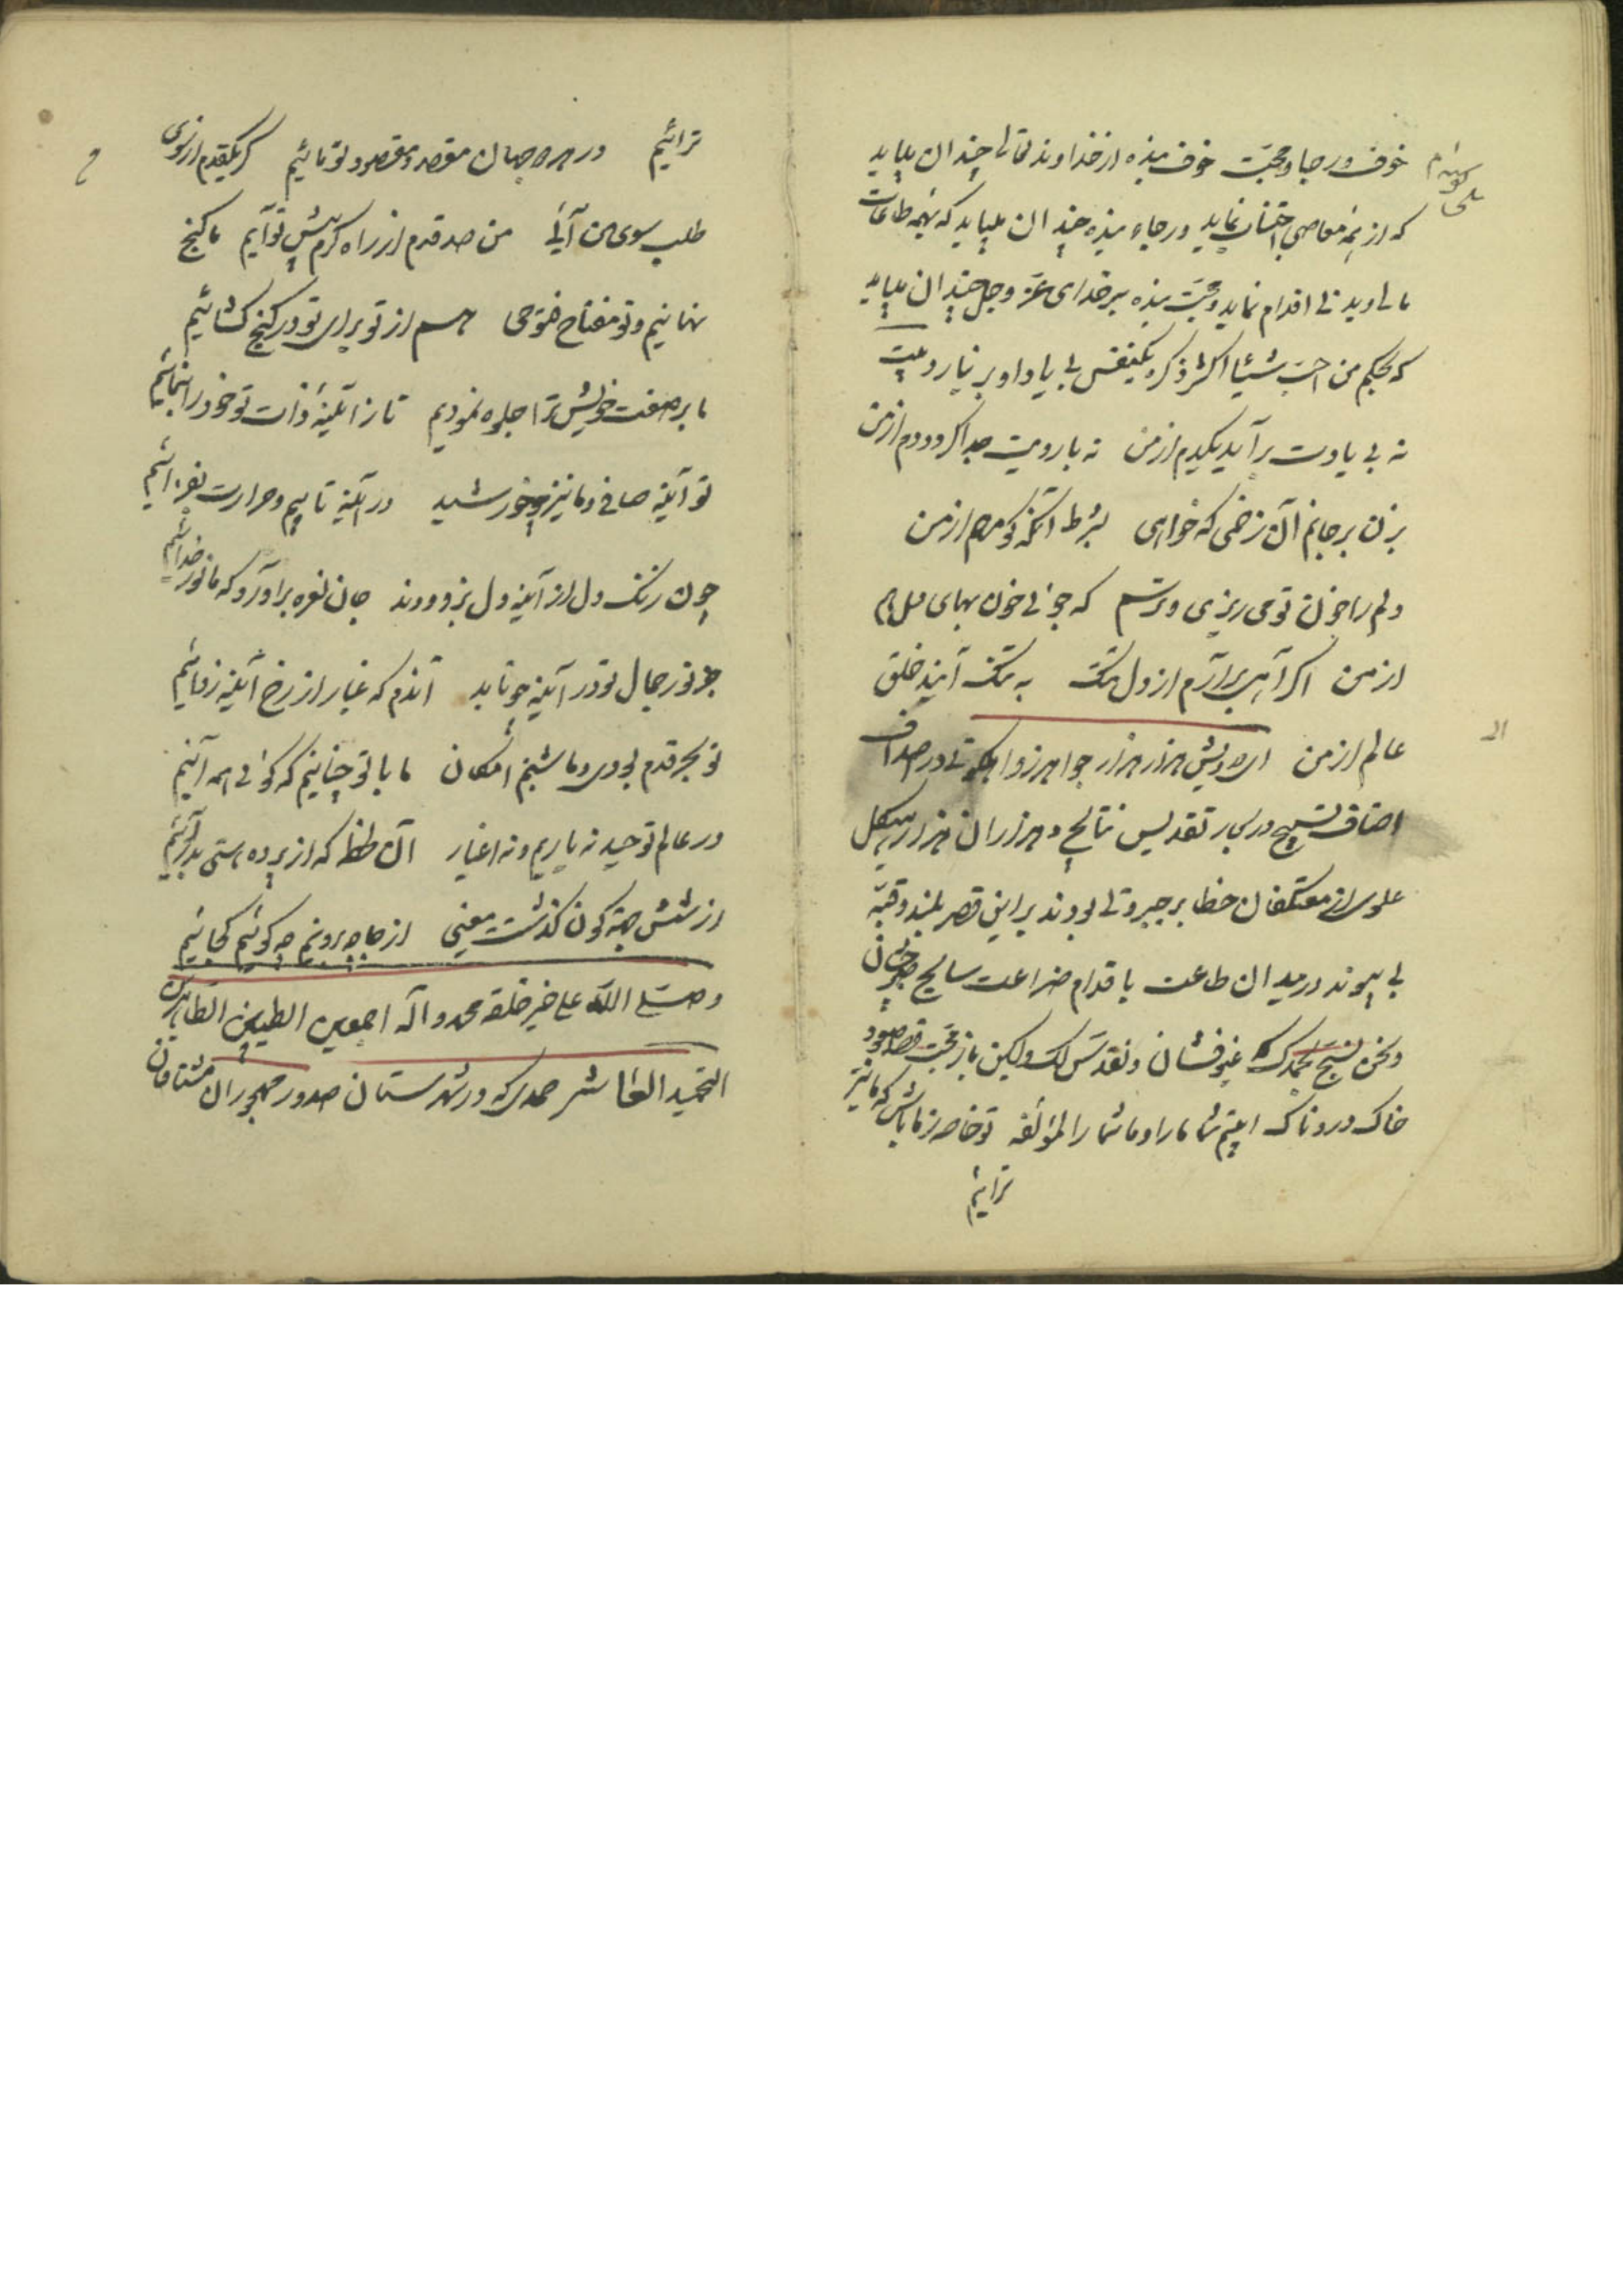 خوف و رجا و محبت خوف بنده از خداوند تعالی چندان میباید
که از همه معاصی اجتناب نماید و رجاء بنده چندان میباید که بهمه طاعات
مالی و بدنی اقدام نماید و محبت بنده بر خدای عز و جل چندان میباید
که بحکم من احب شیئا اکثر ذکره یکنفس بی یاد او بر نیارد بیت
نه بی یادت بر آید یکدم از من نه بارویت جدا کردد دم از من
بزن بر جانم آن زخمی که خواهی بشرط آنکه کو مرهم از من
دلم را خون تو می ریزی و ترسم که جوئی خون بهای دل هم
از من اگر آهی برارم از دل تنک به تنک آیند خلق
عالم از من ای درویش هزار هزار جواهر زواهر ملکوتی در اصداف
اصناف تسبیح در بحار تقدیس نتایج و هزاران هزار هیکل
علوی از معتکفان خطایر جبروتی بودند بر این قصر بلند و قبه
بی پیوند در میدان طاعت باقدام ضراعت سایح
و نحن نسبح بحمدک عنبر فشان و نقدس لک ولیکن باز محبت قصد صعود
خاک دردناک ایشم شما ما را و ما شما را لمؤلفه تو خاصه ز ما باش که ما نیز
ترائیم
ترائیم در هر دو جهان مقصد و مقصود تو مائیم گر یکقدم از روی
طلب سوی من آئی من صد قدم از راه کرم پیش تو آیم ما کنج
نهانیم و تو مفتاح فتوحی هم از تو برای تو در کنج کشائیم
ما بر صفت خویش ترا جلوه نمودیم تا ز آیینه ذات تو خود را بنمائیم
تو آینه صافی و ما نیز چو خورشید در آینه تابیم و حرارت بفزائیم
چون زنک دل از آینه دل بزدودند جان نعره براورد که ما نور خدائیم
جز نور جمال تو در آینه چو تابد آندم که غبار از رخ آینه زدائیم
تو بحر قدم بودی و ما شبنم امکان ما با تو چنانیم که کوئی همه آئیم
در عالم توحید نه یاریم و نه اغیار آن لحظه که از پرده هستی بدر آئیم
از شش جهة کون کذشت معینی از جا چو برونیم چه کوئیم کجائیم
و صلی الله علی خیر خلقه محمد و آله اجمعین الطیبین الطاهرین
التحمید العاشر حمدی که در شهرستان صدور مهجوران مشتاقان